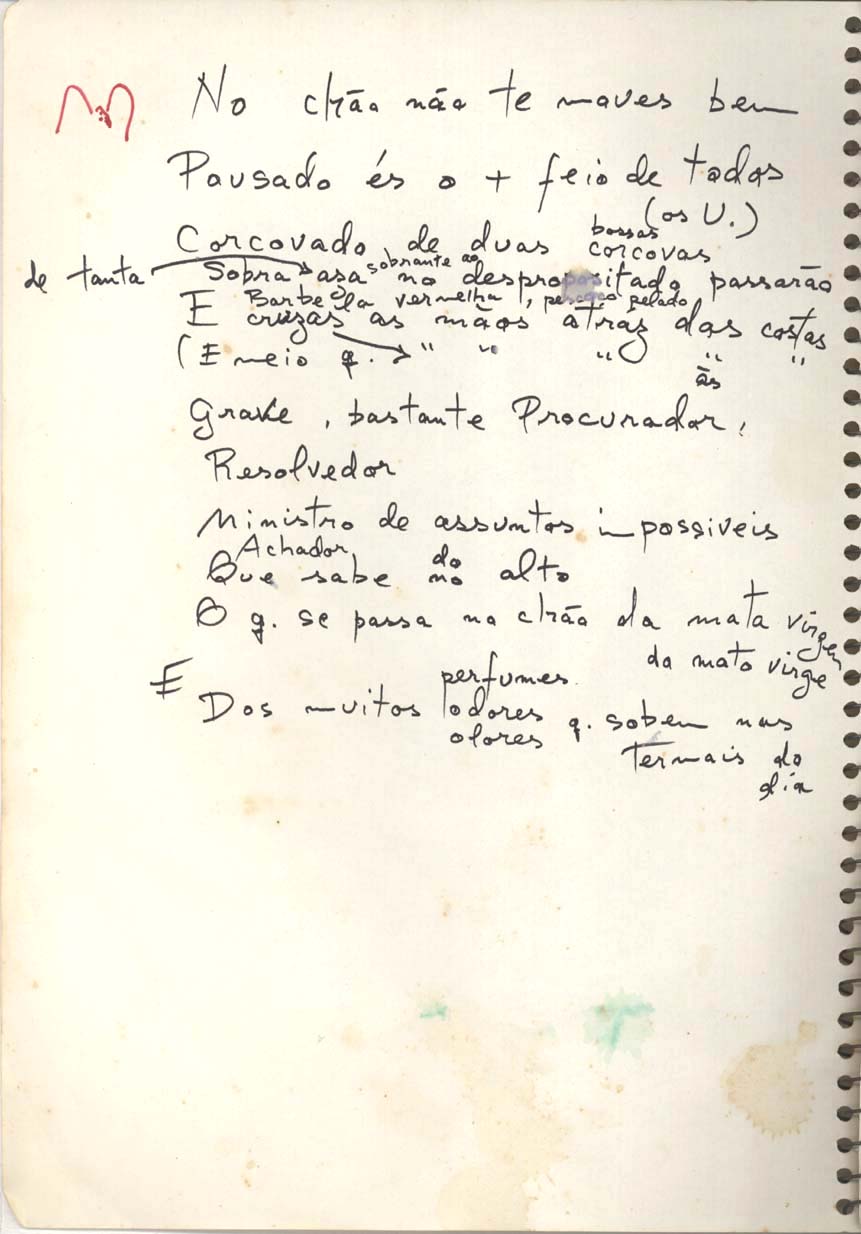 No chão não te moves bem
Pousado és o + feio de todos
(os U.)
bossas
Corcovado de duas corcovas
de tanta Sobra asa sobrante ao no despropositado passarão
Barbela vermelha, pescoço pelado
E cruzas as mãos atraz das costas
(E meio q. " " " " "
às
Grave, bastante Procurador,
Resolvedor
Ministro de assuntos impossiveis
Achador do
Que sabe no alto
O q. se passa no chão da mata virgem
da mato virge
perfumes
E Dos muitos odores q. sobem nas
olores
Termais do
dia